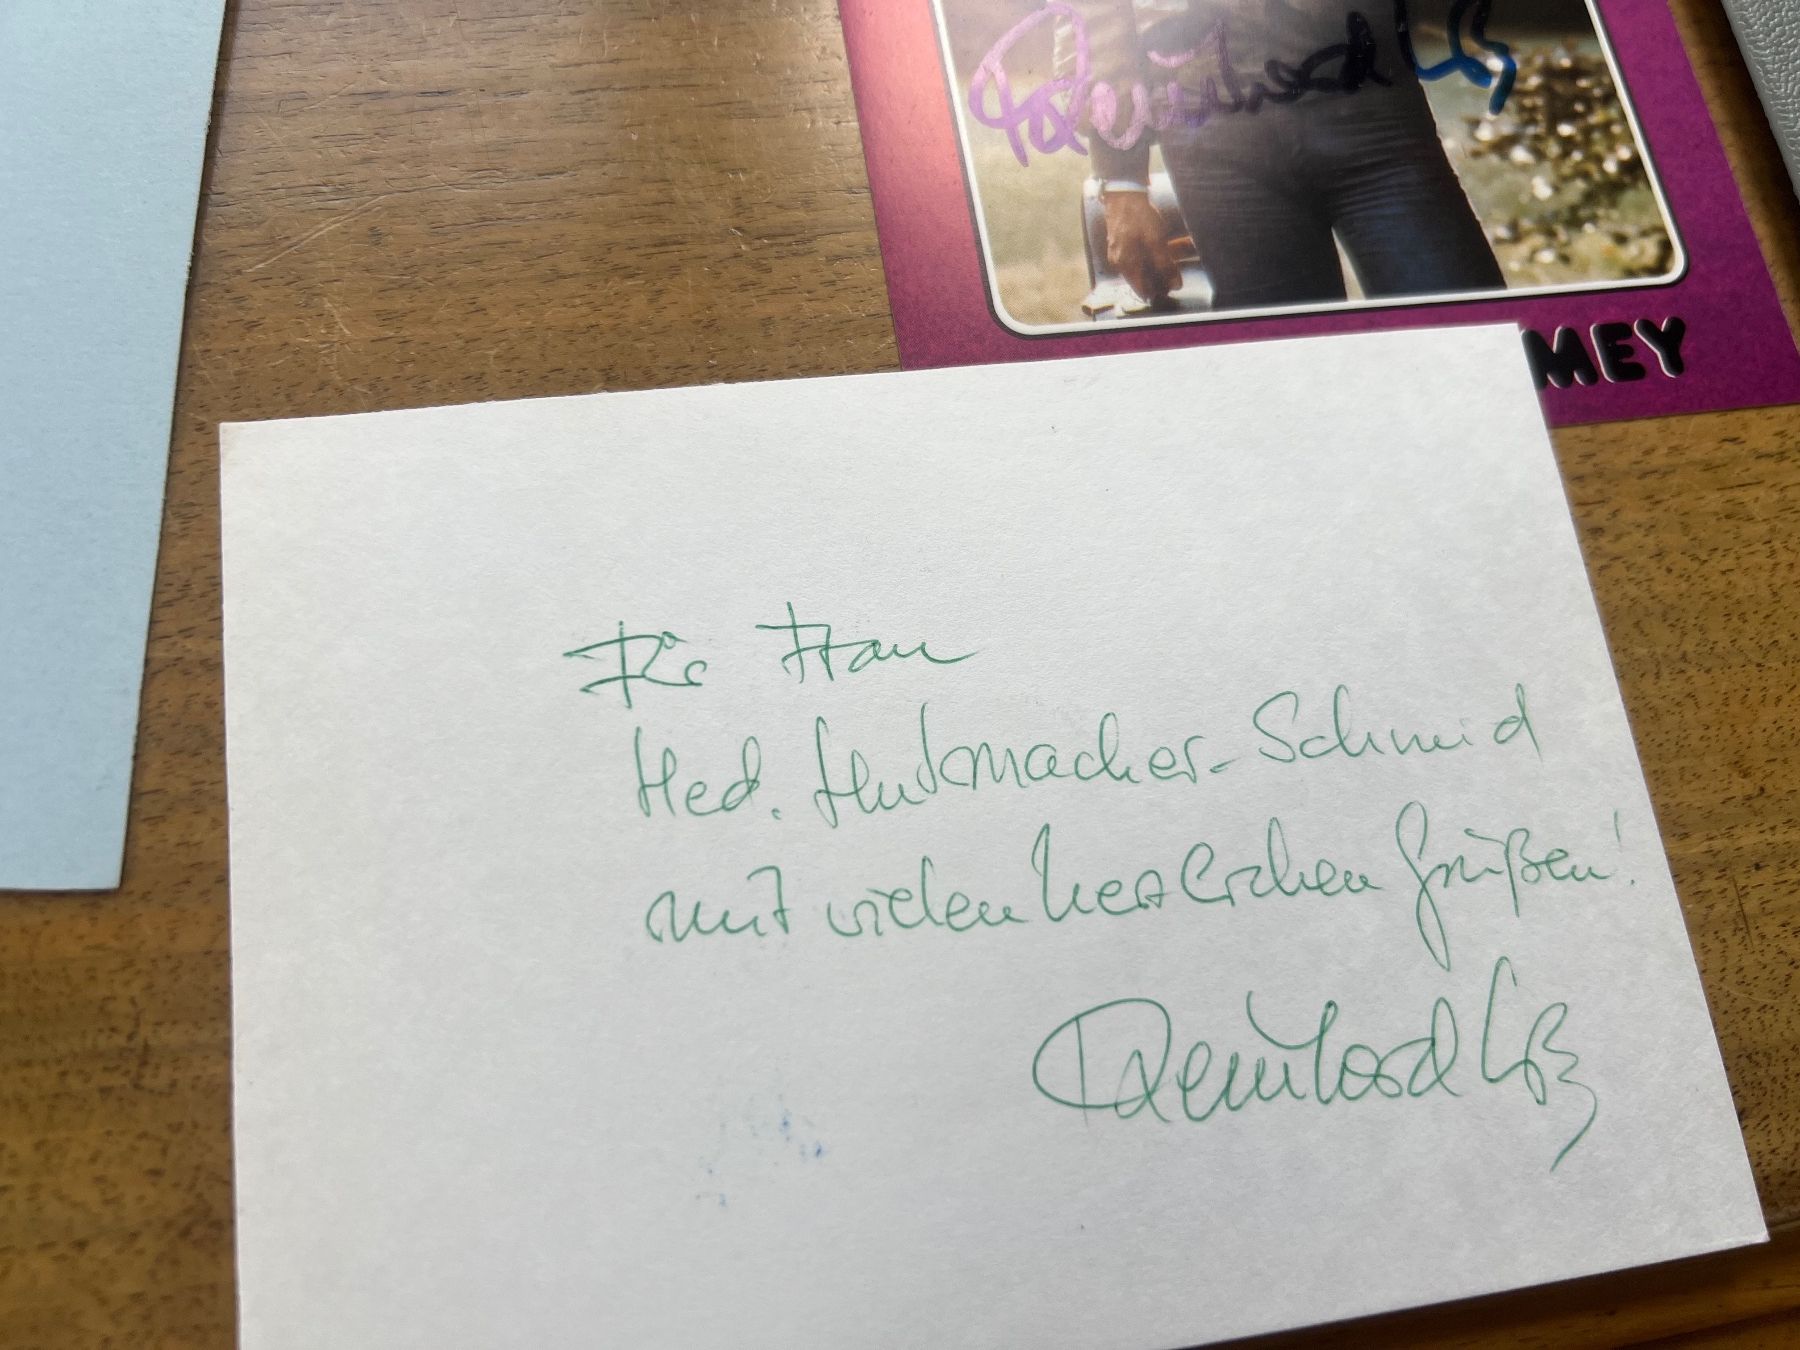 Reinhard
MEY
Für Frau
Hed. Hutmacher-Schmid
mit vielen herzlichen Grüßen!
Reinhard